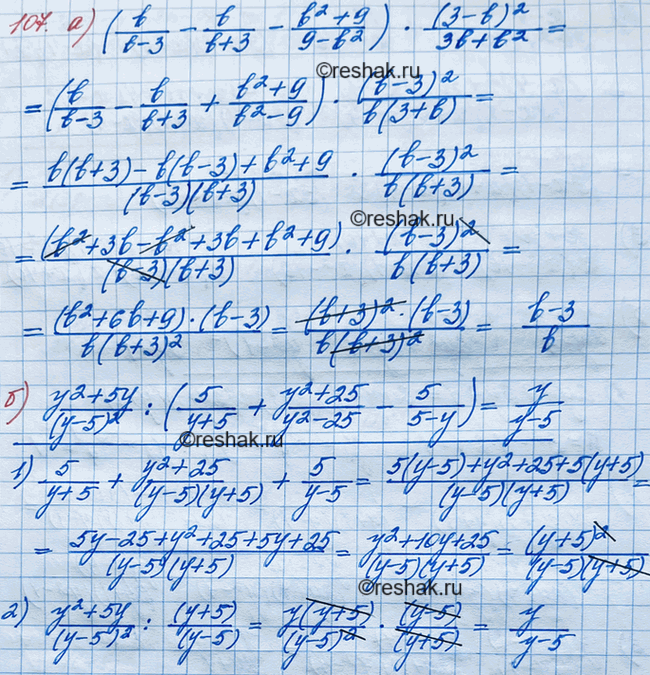 107. а) (b/(b-3) - b/(b+3) - (b²+9)/(9-b²)) · (3-b)²/(3b+b²) =
©reshak.ru
= (b/(b-3) - b/(b+3) + (b²+9)/(b²-9)) · (b-3)²/(b(3+b)) =
= (b(b+3)-b(b-3)+b²+9)/((b-3)(b+3)) · (b-3)²/(b(b+3)) =
©reshak.ru
= (b²+3b-b²+3b+b²+9)/((b-3)(b+3)) · (b-3)²/(b(b+3)) =
= ((b²+6b+9)·(b-3))/(b(b+3)²) = ((b+3)²·(b-3))/(b(b+3)²) = (b-3)/b
б) (y²+5y)/(y-5)² : (5/(y+5) + (y²+25)/(y²-25) - 5/(5-y)) = y/(y-5)
©reshak.ru
1) 5/(y+5) + (y²+25)/((y-5)(y+5)) + 5/(y-5) = (5(y-5)+y²+25+5(y+5))/((y-5)(y+5)) =
= (5y-25+y²+25+5y+25)/((y-5)(y+5)) = (y²+10y+25)/((y-5)(y+5)) = (y+5)²/((y-5)(y+5))
©reshak.ru
2) (y²+5y)/(y-5)² : (y+5)/(y-5) = y(y+5)/(y-5)² · (y-5)/(y+5) = y/(y-5)